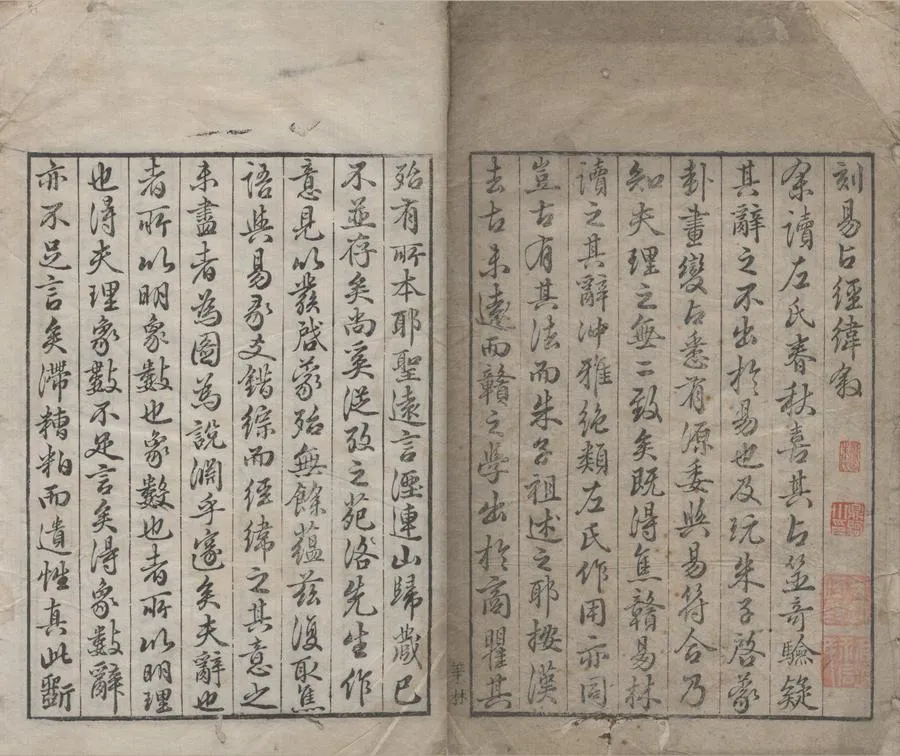 刻易占經緯敘
余讀左氏春秋喜其占筮奇驗疑
其辭之不出於易也及玩朱子啓蒙
卦畫變占悉有源委與易符合乃
知夫理之無二致矣既得焦贛易林
讀之其辭沖雅絶類左氏作用亦同
豈古有其法而朱子祖述之耶按漢
去古未遠而贛之學出於商瞿其
殆有所本耶聖遠言湮連山歸藏已
不並存矣尚奚從攷之苑洛先生作
意見以發啓蒙殆無餘蘊茲復取焦
語與易彖爻錯綜而經緯之其意之
未盡者為圖為說淵乎邃矣夫辭也
者所以明象數也象數也者所以明理
也得夫理象數不足言矣得象數辭
亦不足言矣滯糟粕而遺性真此斷